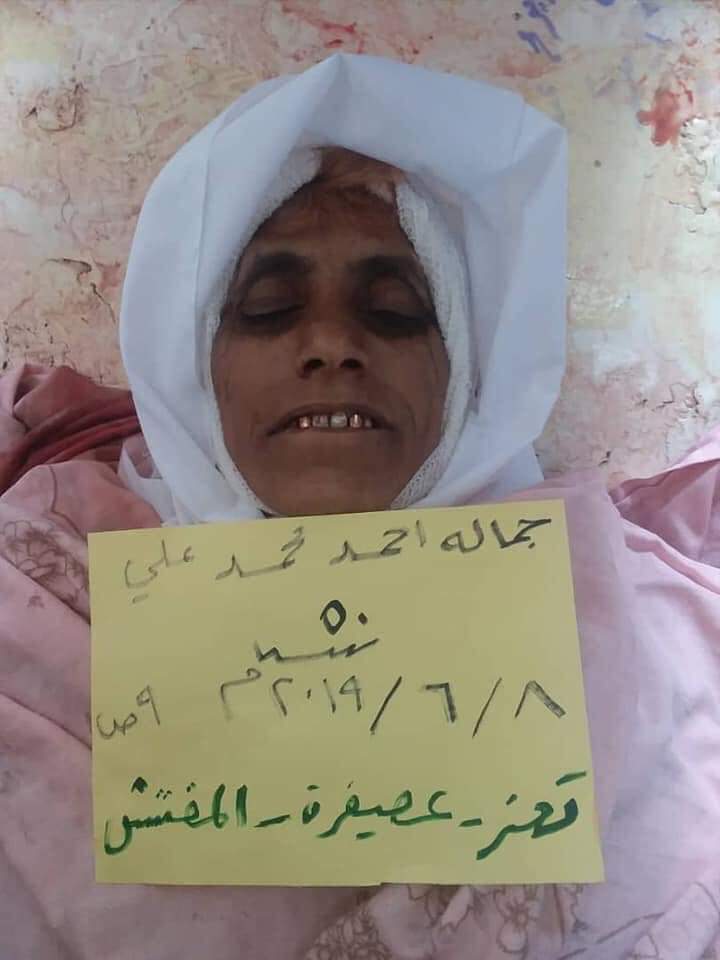 جماله احمد محمد علي
٥٠
سنه
٨/٦/٢٠١٩م ٩ صا
تعز - عصيفرة - المفتش